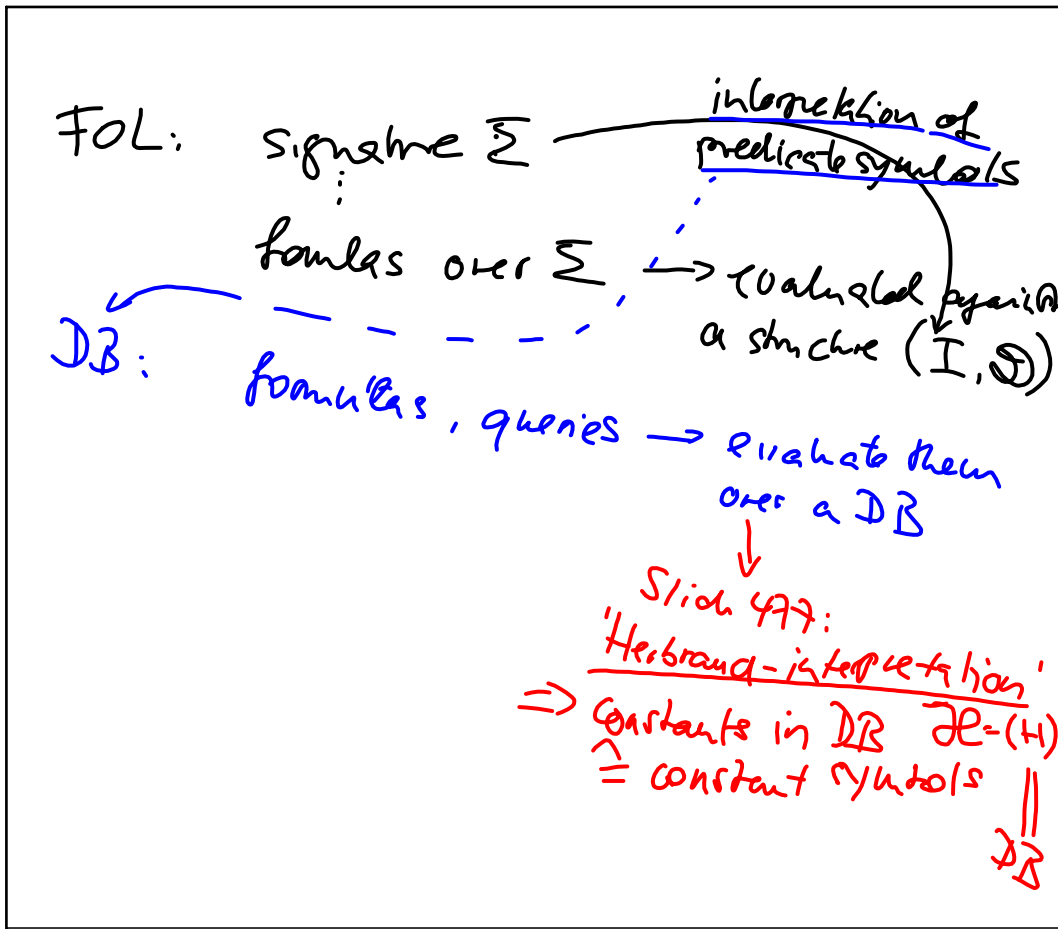 FOL: signature Σ
interpretation of
predicate symbols
formulas over Σ → evaluated against
a structure (I, D)
DB:
formulas, queries → evaluate them
over a DB
Slide 477:
'Herbrand-interpretation'
⇒ constants in DB ℋ=(H)
≙ constant symbols
DB